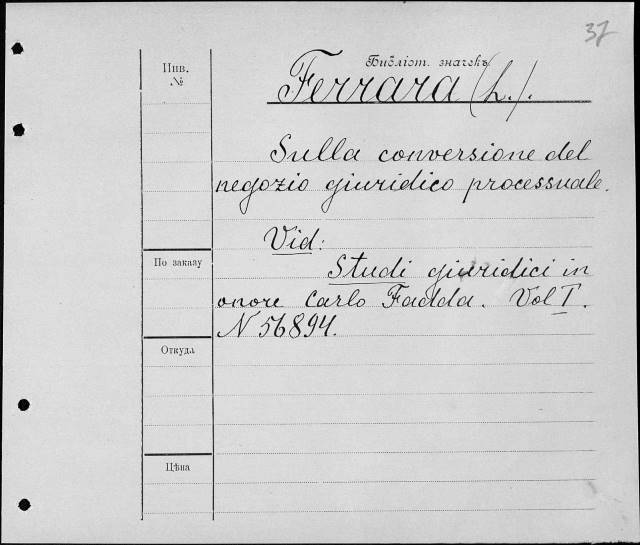 37
Инв.
№
Библіот. значекъ
Ferrara (L.).
Sulla conversione del
negozio giuridico processuale.
Vid:
По заказу
Studi giuridici in
onore Carlo Fadda. Vol I.
N 56894.
Откуда
Цѣна